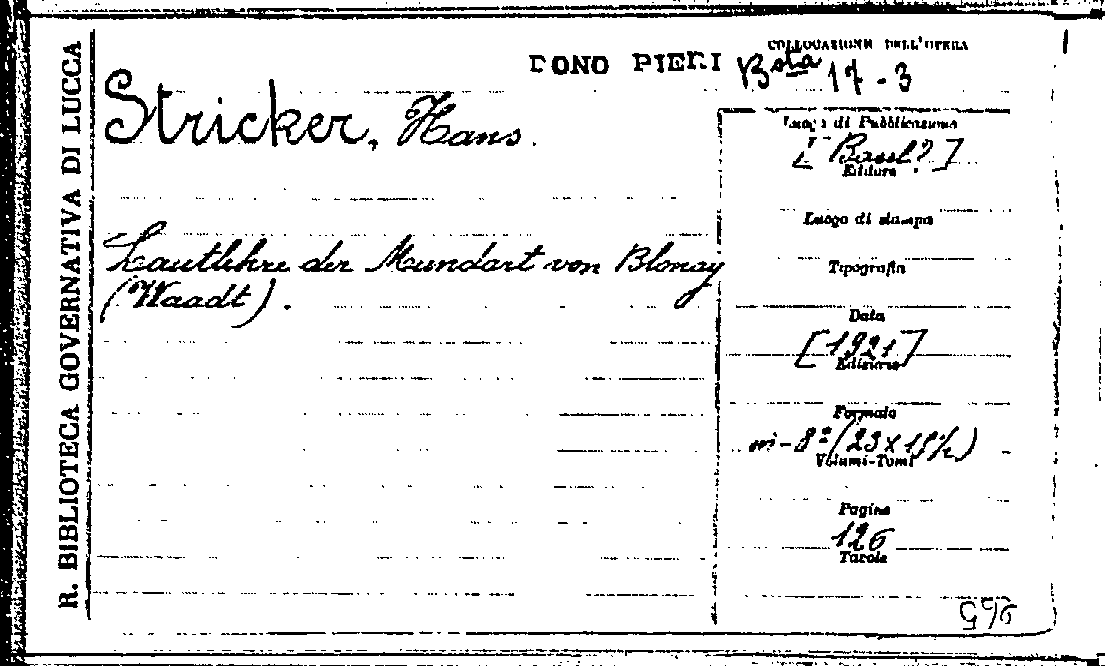 R. BIBLIOTECA GOVERNATIVA DI LUCCA
DONO PIERI
COLLOCAZIONE DELL'OPERA
Bsta 17-3
Stricker, Hans.
Lautlehre der Mundart von Blonay
(Waadt).
Luogo di Pubblicazione
[Basel?]
Editore
Luogo di stampa
Tipografia
Data
[1921]
Edizione
Formato
in-8º (23 x 15½)
Volumi-Tomi
Pagine
126
Tavole